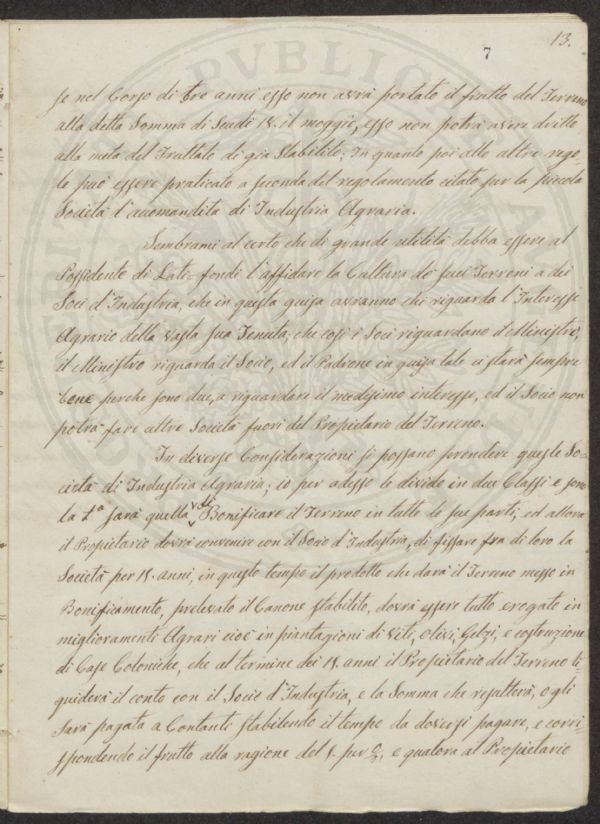 13.
7
se nel Corso di tre anni esso non avrà portato il frutto del Terreno
alla detta Somma di Scudi 15. il moggie, esso non potrà avere diritto
alla metà del Fruttato di già Stabilito; In quanto poi alle altre rego-
le può essere praticato a seconda del regolamento citato per la piccola
Società l'accomandita di Industria Agraria.
Sembrami al certo che di grande utilità debba essere al
Possidente di Lati=fondi l'affidare la Cultura de' suoi Terreni a dei
Soci d'Industria, che in questa guisa avranno che riguarda l'Interesse
Agrario della vasta sua Tenuta; che così i Soci riguardano il Ministro,
il Ministro riguarda il Socio, ed il Padrone in guisa tale ci starà sempre
bene perche sono due, a riguardare il medesimo interesse, ed il Socio non
potrà fare altre Società fuori del Propietario del Terreno.
In diverse Considerazioni si possano prendere queste So-
cietà di Industria Agraria; io per adesso le divido in due Classi e sono
la 1ª sarà quella di Bonificare il Terreno in tutte le sue parti, ed allora
il Propietario dovrà convenire con il Socio d'Industria, di fissare fra di loro la
Società per 15. anni, in questo tempo il prodotto che darà il Terreno messo in
Bonificamento, prelevato il Canone stabilito, dovrà essere tutto erogato in
miglioramenti Agrari cioè in piantagioni di viti, olivi, Gelzi, e costruzione
di Case Coloniche, che al termine dei 15. anni il Propietario del Terreno li-
quiderà il conto con il Socio d'Industria, e la Somma che resulterà, o gli
sarà pagata a Contanti stabilendo il tempo da doversi pagare, e corri-
spondendo il frutto alla ragione del 5. per %, e qualora al Propietario